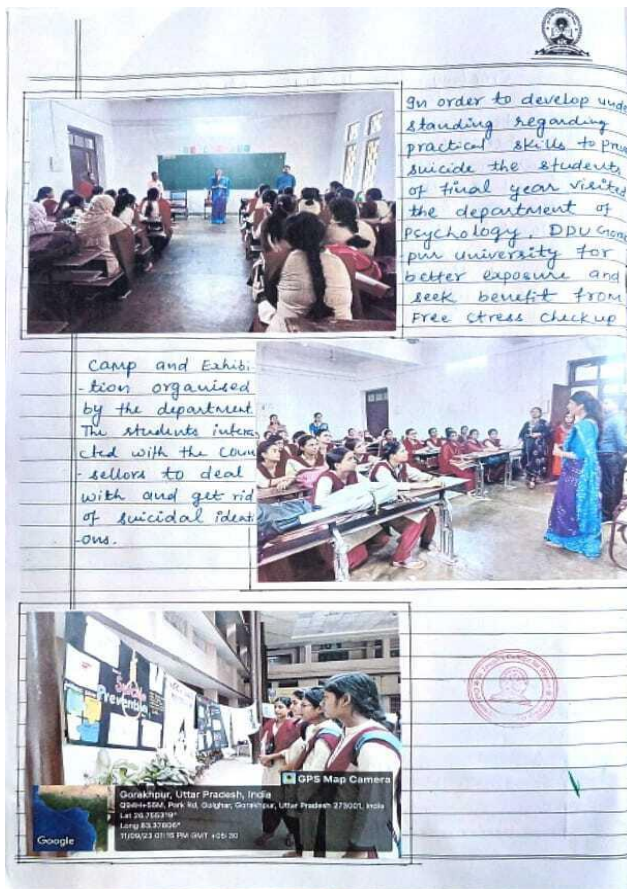 In order to develop unde
standing regarding
practical skills to prev
suicide the students
of final year visited
the department of
Psychology, DDU Gora
pur university for
better exposure and
seek benefit from
Free stress checkup
camp and Exhibi
-tion organised
by the department.
The students intera
cted with the coun
-sellors to deal
with and get rid
of suicidal ideati
ons.
Suicide
Prevention
GPS Map Camera
Gorakhpur, Uttar Pradesh, India
Q94H+55M, Park Rd, Golghar, Gorakhpur, Uttar Pradesh 273001, India
Lat 26.755319°
Long 83.37806°
11/09/23 01:15 PM GMT +05:30
Google